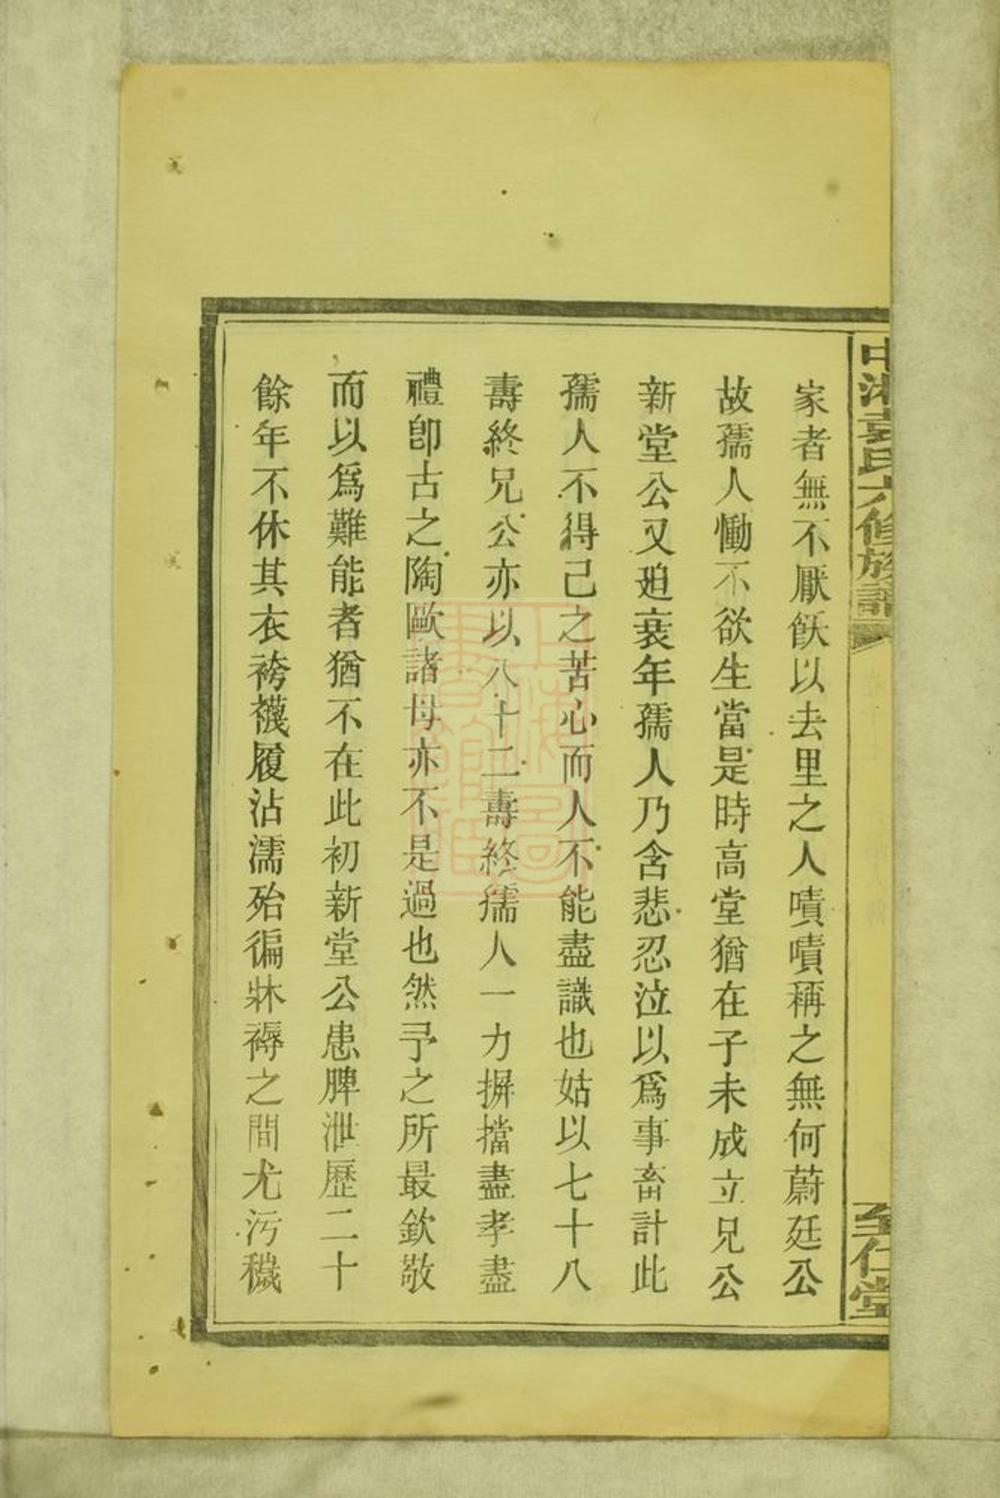 中湘袁氏六修族譜
至仁堂
家者無不厭飫以去里之人嘖嘖稱之無何蔚廷公
故孺人慟不欲生當是時高堂猶在子未成立兄公
新堂公又廹衰年孺人乃含悲忍泣以爲事畜計此
孺人不得已之苦心而人不能盡識也姑以七十八
壽終兄公亦以八十二壽終孺人一力摒擋盡孝盡
禮卽古之陶歐諸母亦不是過也然予之所最欽敬
而以爲難能者猶不在此初新堂公患脾泄歷二十
餘年不休其衣袴襪履沾濡殆徧牀褥之間尤污穢
上海圖書館藏